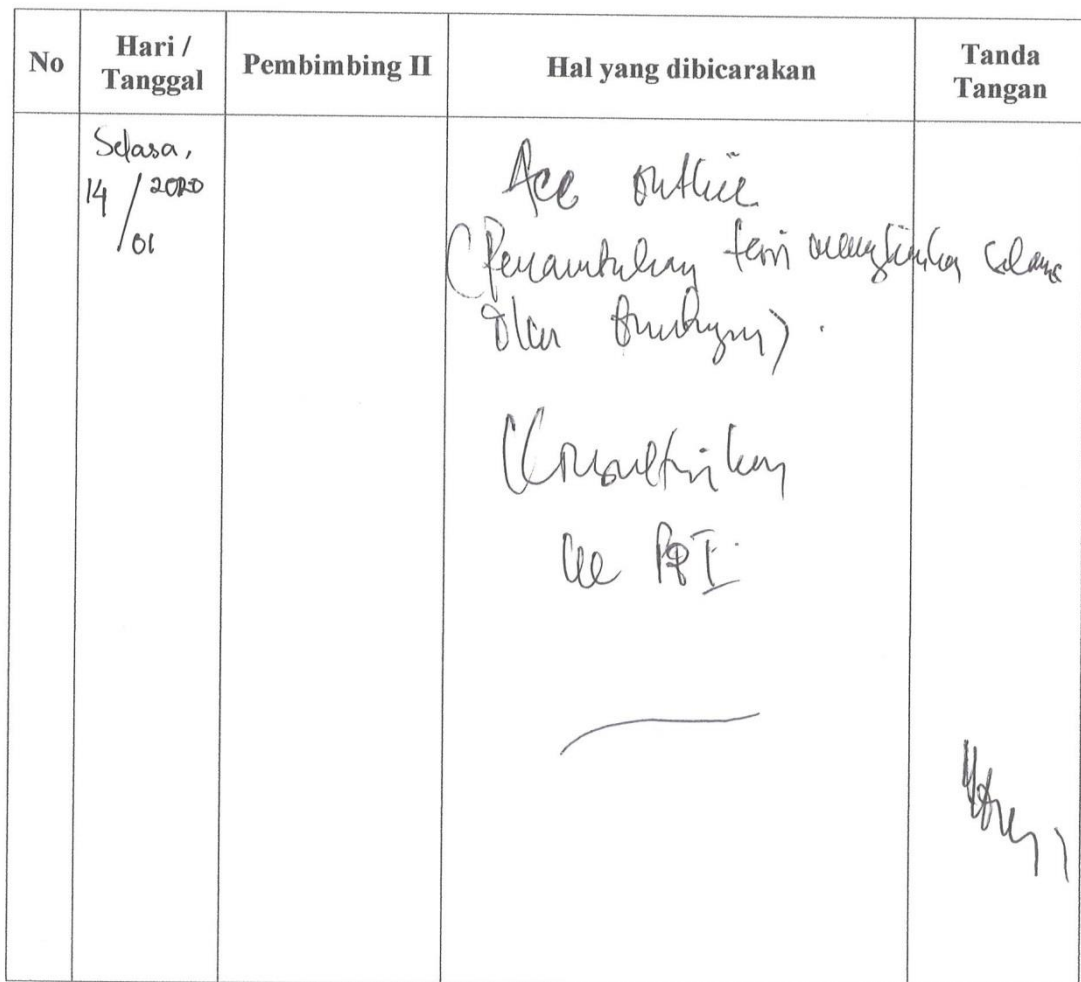 No
Hari /
Tanggal
Pembimbing II
Hal yang dibicarakan
Tanda
Tangan
Selasa,
14/01 2020
Acc outline
(Penambahan teori
Konsultasikan
ke PB I